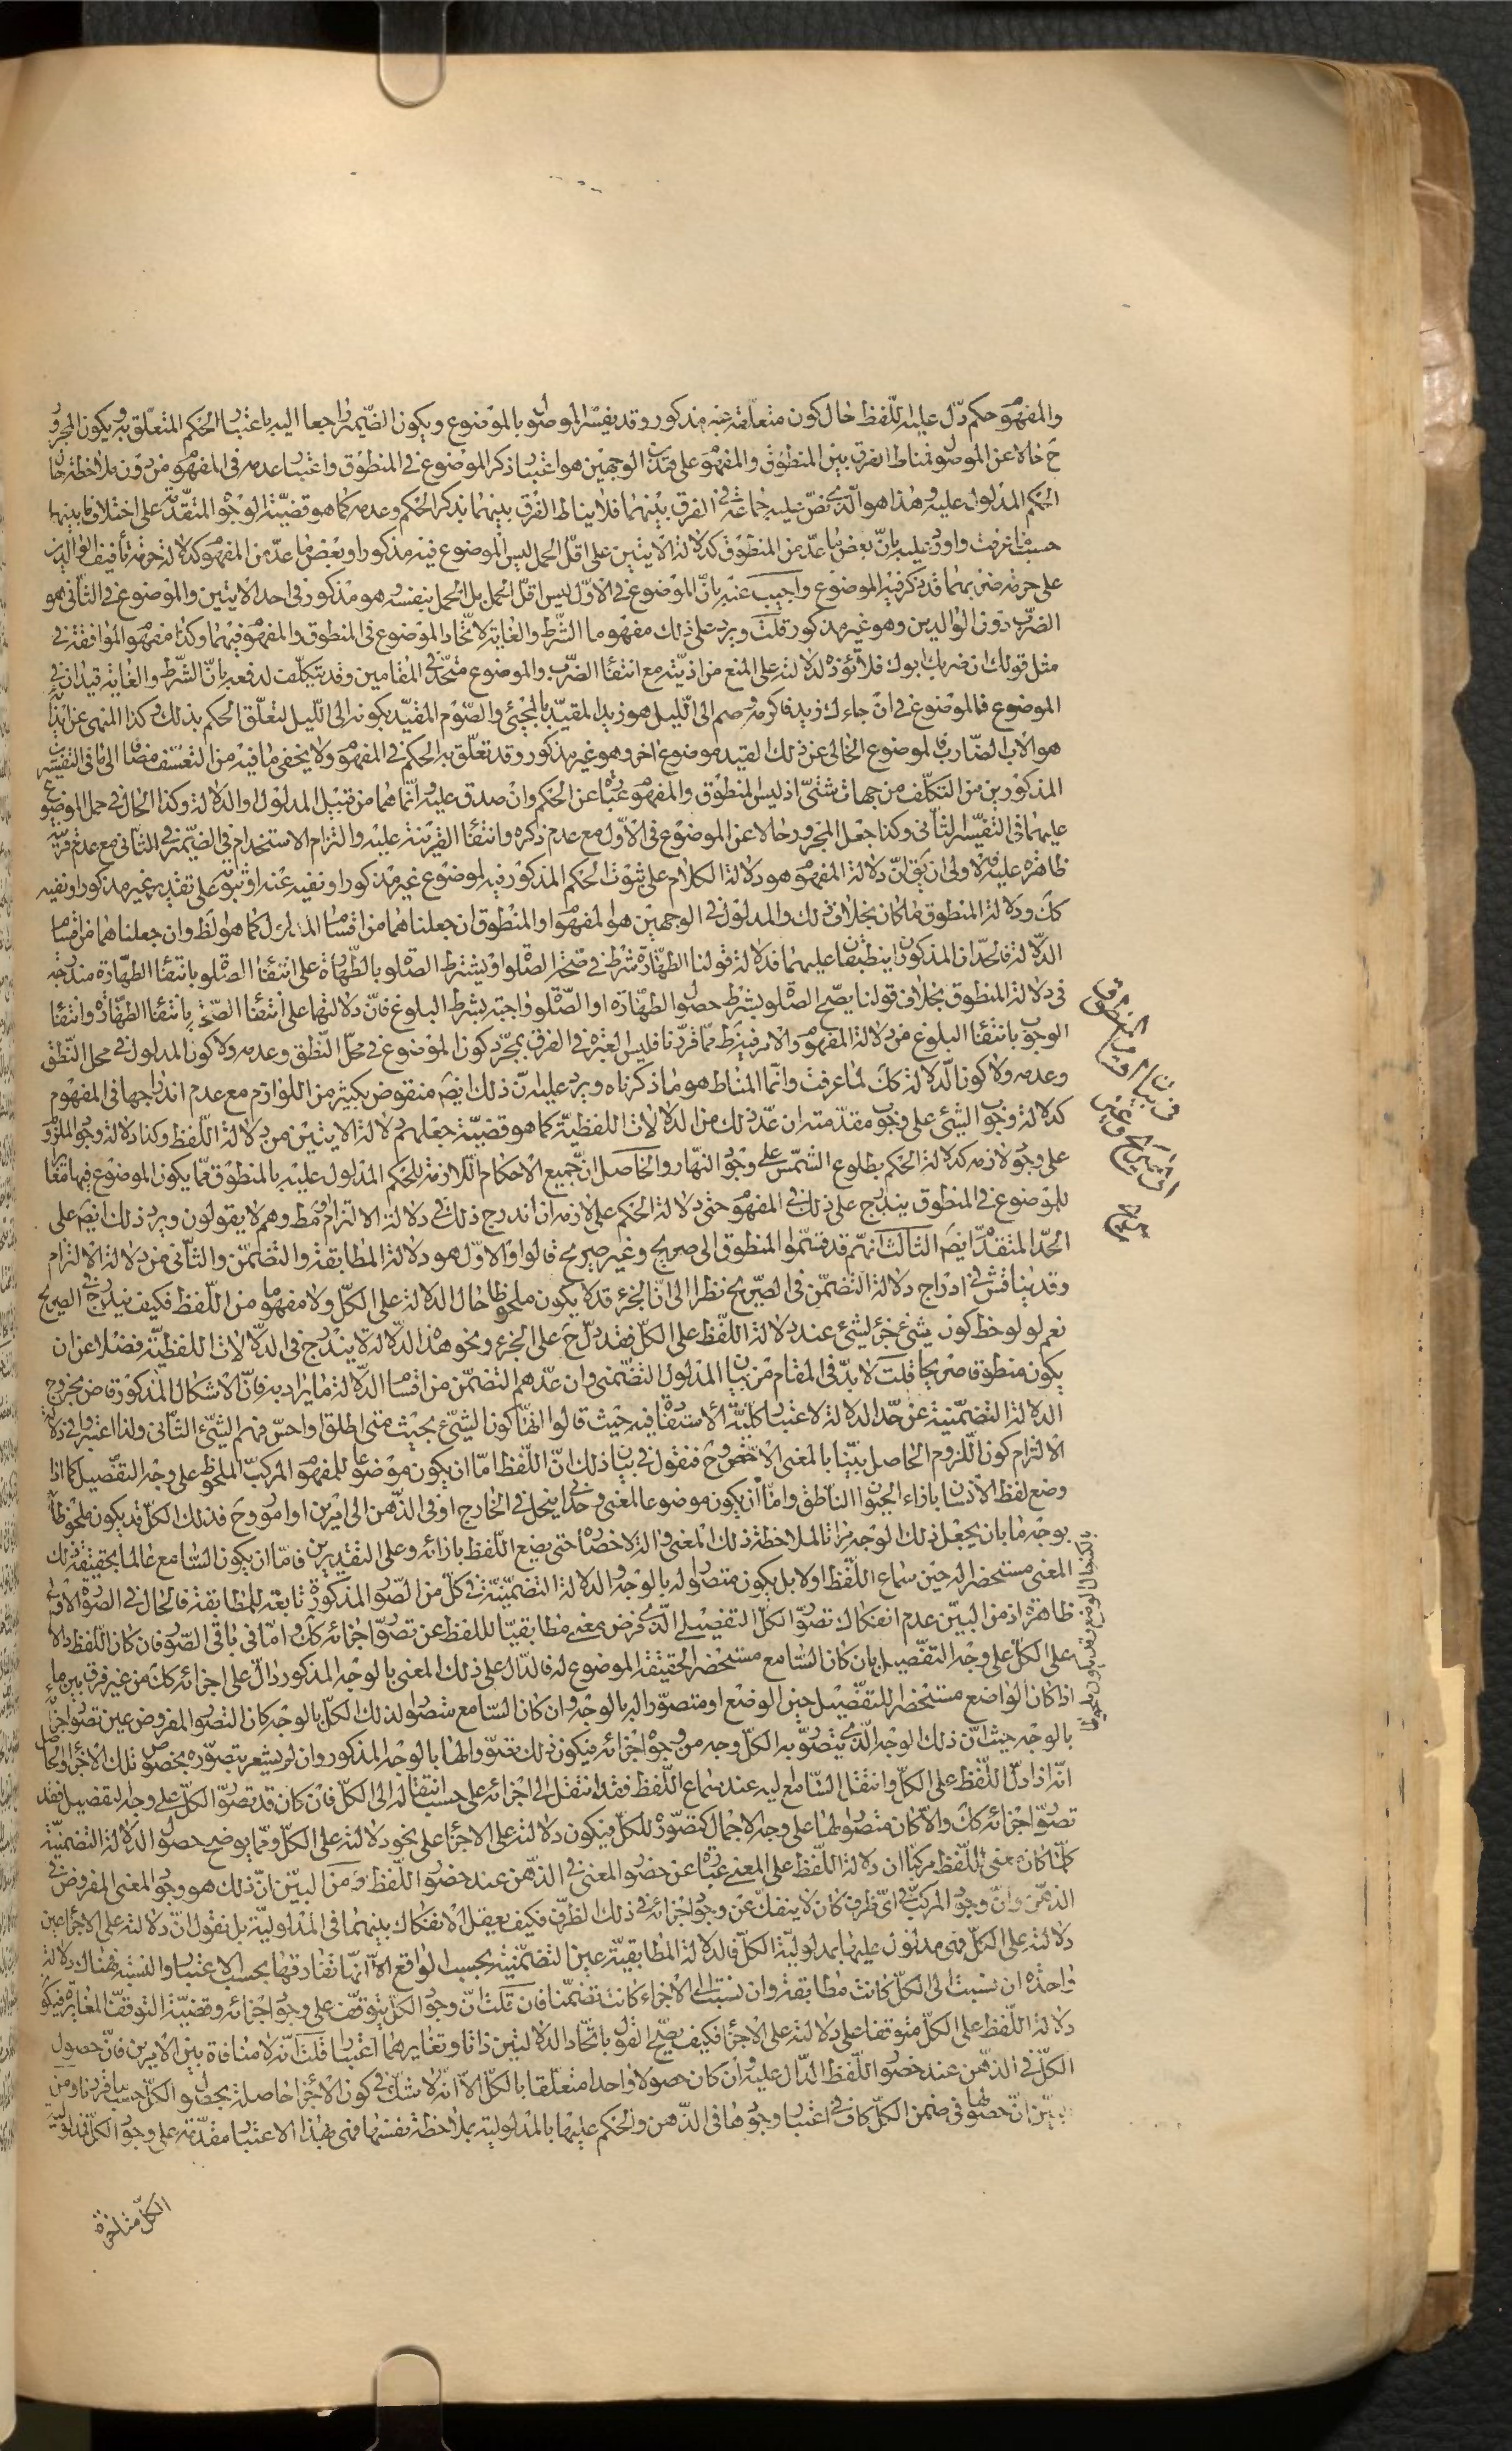 والمفهوم حكم دل عليه اللفظ حال كون متعلقه غير مذكور وقد يفسر الموصول بالموضوع ويكون الضمير راجعا اليه باعتبار الحكم المتعلق به ويكون المجرور
ح حالا عن الموصول فمناط الفرق بين المنطوق والمفهوم على هذين الوجهين هو اعتبار ذكر الموضوع في المنطوق واعتبار عدمه في المفهوم من دون ملاحظة حال
الحكم المدلول عليه وهذا هو الذى نص عليه جماعة في الفرق بينهما فلا يناط الفرق بينهما بذكر الحكم وعدمه كما هو قضية الوجوه المتقدمة على اختلاف ما بينها
حسبما عرفت واورد عليه بان بعض ما عد من المنطوق كدلالة الايتين على اقل الحمل ليس الموضوع فيه مذكورا وبعض ما عد من المفهوم كدلالة حرمة تأفيف الوالدين
على حرمة ضربهما قد ذكر فيه الموضوع واجيب عنه بان الموضوع في الاول ليس اقل الحمل بل الحمل بنفسه وهو مذكور في احد الايتين والموضوع في الثاني هو
الضرب دون الوالدين وهو غير مذكور قلت ويرد على ذلك مفهوما الشرط والغاية لاتحاد الموضوع في المنطوق والمفهوم فيهما وكذا مفهوم الموافقة في
مثل قولك ان ضربك ابوك فلا تؤذه لدلالته على المنع من اذيته مع انتفاء الضرب والموضوع متحد في المقامين وقد يتكلف لدفعه بان الشرط والغاية قيدان في
الموضوع فالموضوع في ان جاءك زيد فاكرمه وصم الى الليل هو زيد المقيد بالمجيئ والصوم المقيد بكونه الى الليل لتعلق الحكم بذلك وكذا المنهى عن ايذائه
هو الاب الضارب فالموضوع الخالى عن ذلك القيد موضوع اخر وهو غير مذكور وقد تعلق به الحكم في المفهوم ولا يخفى ما فيه من التعسف مضافا الى ما في التفسيرين
المذكورين من التكلف من جهات شتى اذ ليس المنطوق والمفهوم عبارة عن الحكم وان صدق عليه انما هما من قبيل المدلول او الدلالة وكذا الحال في حمل الموضوع
عليهما في التفسير الثاني وكذا جعل المجرور حالا عن الموضوع في الاول مع عدم ذكره وانتفاء القرينة عليه والتزام الاستخدام في الضمير في الثاني مع عدم قرينة
ظاهرة عليه فالاولى ان يق ان دلالة المفهوم هو دلالة الكلام على ثبوت الحكم المذكور فيه لموضوع غير مذكور او نفيه عنه او ثبوته على تقدير غير مذكور او نفيه
كك ودلالة المنطوق ما كان بخلاف ذلك والمدلول في الوجهين هو المفهوم او المنطوق ان جعلناهما من اقسام المدلول كما هو الظ وان جعلناهما من اقسام
الدلالة فالحدان المذكوران ينطبقان عليهما فدلالة قولنا الطهارة شرط في صحة الصلوة او يشترط الصلوة بالطهارة على انتفاء الصلوة بانتفاء الطهارة مندرجة
في دلالة المنطوق بخلاف قولنا يصح الصلوة بشرط حصول الطهارة او الصلوة واجبة بشرط البلوغ فان دلالتهما على انتفاء الصحة بانتفاء الطهارة وانتفاء
الوجوب بانتفاء البلوغ من دلالة المفهوم والامر فيه ظ مما قررنا فليس العبرة في الفرق بمجرد كون الموضوع في محل النطق وعدمه ولا كون المدلول في محل النطق
وعدمه ولا كون الدلالة كك لما عرفت وانما المناط هو ما ذكرناه ويرد عليه ان ذلك ايضا منقوض بكثير من اللوازم مع عدم اندراجها في المفهوم
كدلالة وجوب الشيئ على وجوب مقدمته ان عد ذلك من الدلالات اللفظية كما هو قضية جعلهم دلالة الايتين من دلالة اللفظ وكذا دلالة وجود الملزوم
على وجود لازمه كدلالة الحكم بطلوع الشمس على وجود النهار والحاصل ان جميع الاحكام اللازمة للحكم المدلول عليه بالمنطوق مما يكون الموضوع فيها مغايرا
للموضوع في المنطوق يندرج على ذلك في المفهوم حتى دلالة الحكم على لازمه ان اندرج ذلك في دلالة الالتزام مط وهم لا يقولون به ويرد ذلك ايضا على
الحد المتقدم ايضا الثالث انهم قد قسموا المنطوق الى صريح وغير صريح قالوا والاول هو دلالة المطابقة والتضمن والثاني من دلالة الالتزام
وقد يناقش في ادراج دلالة التضمن في الصريح نظرا الى ان الجزء قد لا يكون ملحوظا حال الدلالة على الكل ولا مفهوما من اللفظ فكيف يندرج في الصريح
نعم لو لوحظ كون شيئ جزء لشيئ عند دلالة اللفظ على الكل فقد دل ح على الجزء ونحو هذه الدلالة لا يندرج في الدلالات اللفظية فضلا عن ان
يكون منطوقا صريحا قلت لا بد في المقام من بيان المدلول التضمنى وان عدهم التضمن من اقسام الدلالة ما يراد به فان الاشكال المذكور قاض بخروج
الدلالة التضمنية عن حد الدلالة لاعتبار كلية الاستفادة فيه حيث قالوا انها كون الشيئ بحيث متى اطلق او احس فهم الشيئ الثاني ولذا اعتبروا في دلالة
الالتزام كون اللزوم الحاصل بينا بالمعنى الاخص وح فنقول في بيان ذلك ان اللفظ اما ان يكون موضوعا للمفهوم المركب الملحوظ على وجه التفصيل كما اذا
وضع لفظ الانسان بازاء الحيوان الناطق واما ان يكون موضوعا لمعنى وحدانى ينحل في الخارج او في الذهن الى امرين او امور وح فذلك الكل قد يكون ملحوظا
بوجه ما بان يجعل ذلك الوجه مراتا لملاحظة ذلك المعنى والة لاحضاره حتى يضع اللفظ بازائه وعلى التقديرين فاما ان يكون السامع عالما بحقيقة ذلك
المعنى مستحضرا له حين سماع اللفظ او لا بل يكون متصورا له بالوجه والدلالة التضمنية في كل من الصور المذكورة تابعة للمطابقة فالحال في الصورة الاولى
ظاهرة اذ من البين عدم انفكاك تصور الكل التفصيلى الذى فرض معنى مطابقيا لللفظ عن تصور اجزائه كك واما في باقى الصور فان كان اللفظ دالا
على الكل على وجه التفصيل بان كان السامع مستحضرا لحقيقة الموضوع له فالدال على ذلك المعنى بالوجه المذكور دال على اجزائه كك من غير فرق بين ما
اذا كان الواضع مستحضرا للتفصيل حين الوضع او متصورا له بالوجه وان كان السامع متصورا لذلك الكل بالوجه كان التصور المفروض عين تصور اجزائه
بالوجه حيث ان ذلك الوجه الذى يتصور به الكل وجه من وجوه اجزائه فيكون ذلك تصورا لها بالوجه المذكور وان لم يشعر بتصوره بخصوص تلك الاجزاء والحاصل
انه اذا دل اللفظ على الكل وانتقل السامع اليه عند سماع اللفظ فقد انتقل الى اجزائه على حسب انتقاله الى الكل فان كان قد تصور الكل على وجه التفصيل فقد
تصور اجزائه كك والا كان متصورا لها على وجه الاجمال كتصوره للكل فيكون دلالته على الاجزاء على نحو دلالته على الكل ومما يوضح حصول الدلالة التضمنية
كلما كان معنى اللفظ مركبا ان دلالة اللفظ على المعنى عبارة عن حضور المعنى في الذهن عند حضور اللفظ ومن البين ان ذلك هو وجود المعنى المفروض في
الذهن وان وجود المركب في اى ظرف كان لا ينفك عن وجود اجزائه في ذلك الظرف فكيف يعقل الانفكاك بينهما في المدلولية بل نقول ان دلالته على الاجزاء عين
دلالته على الكل فهى مدلول عليها بمدلولية الكل فالدلالة المطابقية عين التضمنية بحسب الواقع الا انها تفارقها بحسب الاعتبار والنسبة فهناك دلالة
واحدة ان نسبت الى الكل كانت مطابقة وان نسبت الى الاجزاء كانت تضمنا فان قلت ان وجود الكل يتوقف على وجود اجزائه وقضية التوقف المغايرة فيكون
دلالة اللفظ على الكل متوقفا على دلالته على الاجزاء فكيف يصح القول باتحاد الدلالتين ذاتا وتغايرهما اعتبارا قلت انه لا منافاة بين الامرين فان حصول
الكل في الذهن عند حضور اللفظ الدال عليه وان كان حصولا واحدا متعلقا بالكل الا انه لا شك في كون الاجزاء حاصلة بحصول الكل حسبما قررنا ومن
البين ان حصولها في ضمن الكل كاف في اعتبار وجودها في الذهن والحكم عليها بالمدلولية بملاحظة نفسها فهى بهذا الاعتبار مقدمة على وجود الكل فمدلولية
الكل متاخرة
في بيان اقسام المنطوق
الى الصريح وغير
الصريح